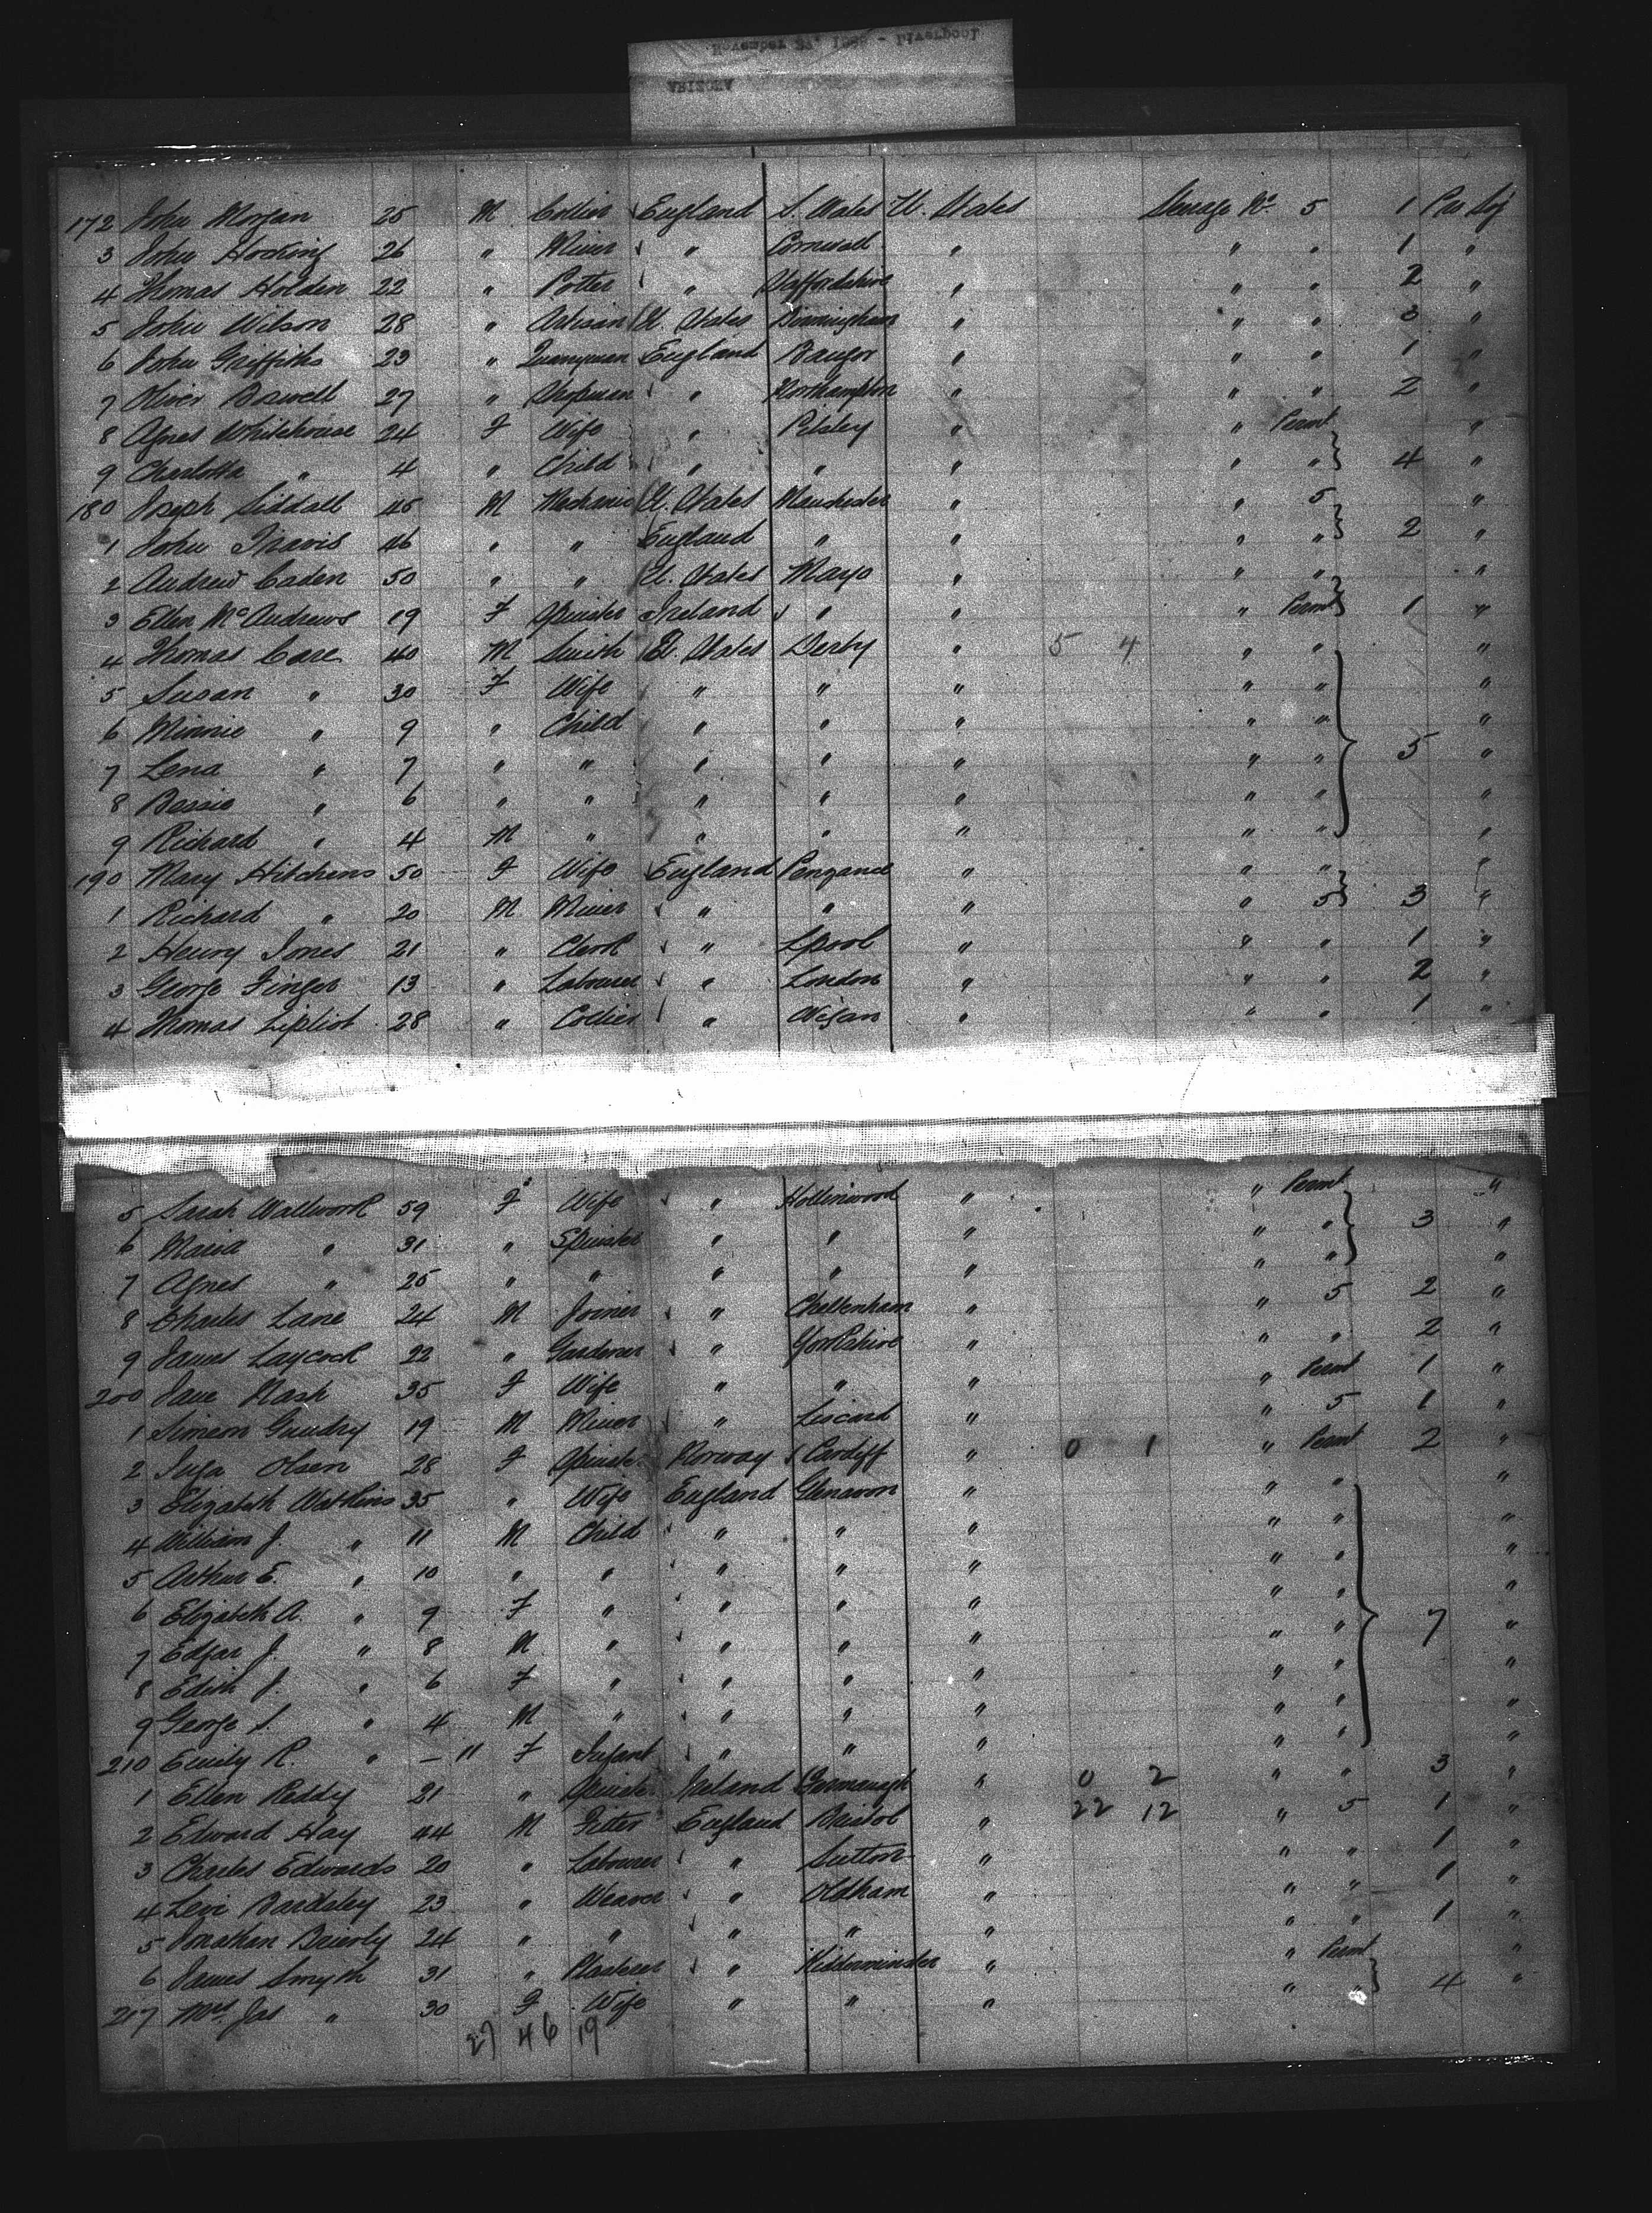 172 John Morgan 25 M Collier England S. Wales U. States Steerage No. 5 1 Pas Sgr
3 John Hocking 26 " Miner " Cornwall " " " 1 "
4 Thomas Holden 22 " Potter " Staffordshire " " " 2 "
5 John Wilson 28 " Artisan U. States Birmingham " " " 3 "
6 John Griffiths 23 " Quarryman England Bangor " " " 1 "
7 Oliver 27 " Shopman " Northampton " " " 2 "
8 Agnes Whitehouse 24 F Wife " Pilsley " " Permt "
9 Charlotte " 4 " Child " " " " " 4 "
180 Joseph Siddall 45 M Mechanic U. States Manchester " " 5 "
1 John Travis 46 " " England " " " " 2 "
2 Andrew Caden 50 " " U. States Mayo " " " "
3 Ellen McAndrews 19 F Spinster Ireland " " " Permt 1 "
4 Thomas Care 40 M Smith U. States Derby " 5 4 " " "
5 Susan " 30 F Wife " " " " " "
6 Minnie " 9 " Child " " " " " "
7 Lena " 7 " " " " " " " 5 "
8 Bessie " 6 " " " " " " " "
9 Richard " 4 M " " " " " " "
190 Mary Hitchens 50 F Wife England Penzance " " " "
1 Richard " 20 M Miner " " " " 5 3 "
2 Henry Jones 21 " Clerk " Lpool " " " 1 "
3 George Finger 13 " Labourer " London " " " 2 "
4 Thomas Liptrot 28 " Collier " Wigan " " " 1 "
5 Sarah Wallwork 59 F Wife " Hollinwood " " Permt "
6 Maria " 31 " Spinster " " " " " 3 "
7 Agnes " 25 " " " " " " " "
8 Charles Lane 24 M Joiner " Cheltenham " " 5 2 "
9 James Laycock 22 " Gardener " Yorkshire " " " 2 "
200 Jane Nash 35 F Wife " " " " Permt 1 "
1 Simeon Gundry 19 M Miner " Liscard " " 5 1 "
2 Inga Olsen 28 F Spinster Norway Cardiff " 0 1 " Permt 2 "
3 Elizabeth Watkins 35 " Wife England Glenavon " " " "
4 William J. " 11 M Child " " " " " "
5 Arthur E. " 10 " " " " " " " "
6 Elizabeth A. " 9 F " " " " " " "
7 Edgar J. " 8 M " " " " " " 7 "
8 Edith J. " 6 F " " " " " " "
9 George S. " 4 M " " " " " " "
210 Emily R. " – 11 F Infant " " " " " "
1 Ellen Reddy 21 " Spinster Ireland Fermanagh " 0 2 " " 3 "
2 Edward Hay 44 M Fitter England Bristol " 22 12 " 5 1 "
3 Charles Edwards 20 " Labourer " Sutton " " " 1 "
4 Levi Bardsley 23 " Weaver " Oldham " " " 1 "
5 Jonathan Brierly 24 " " " " " " " 1 "
6 James Smyth 31 " Plasterer " Kidderminster " " Permt "
217 Mrs. Jas " 30 F Wife " " " " " 4 "
27 46 19